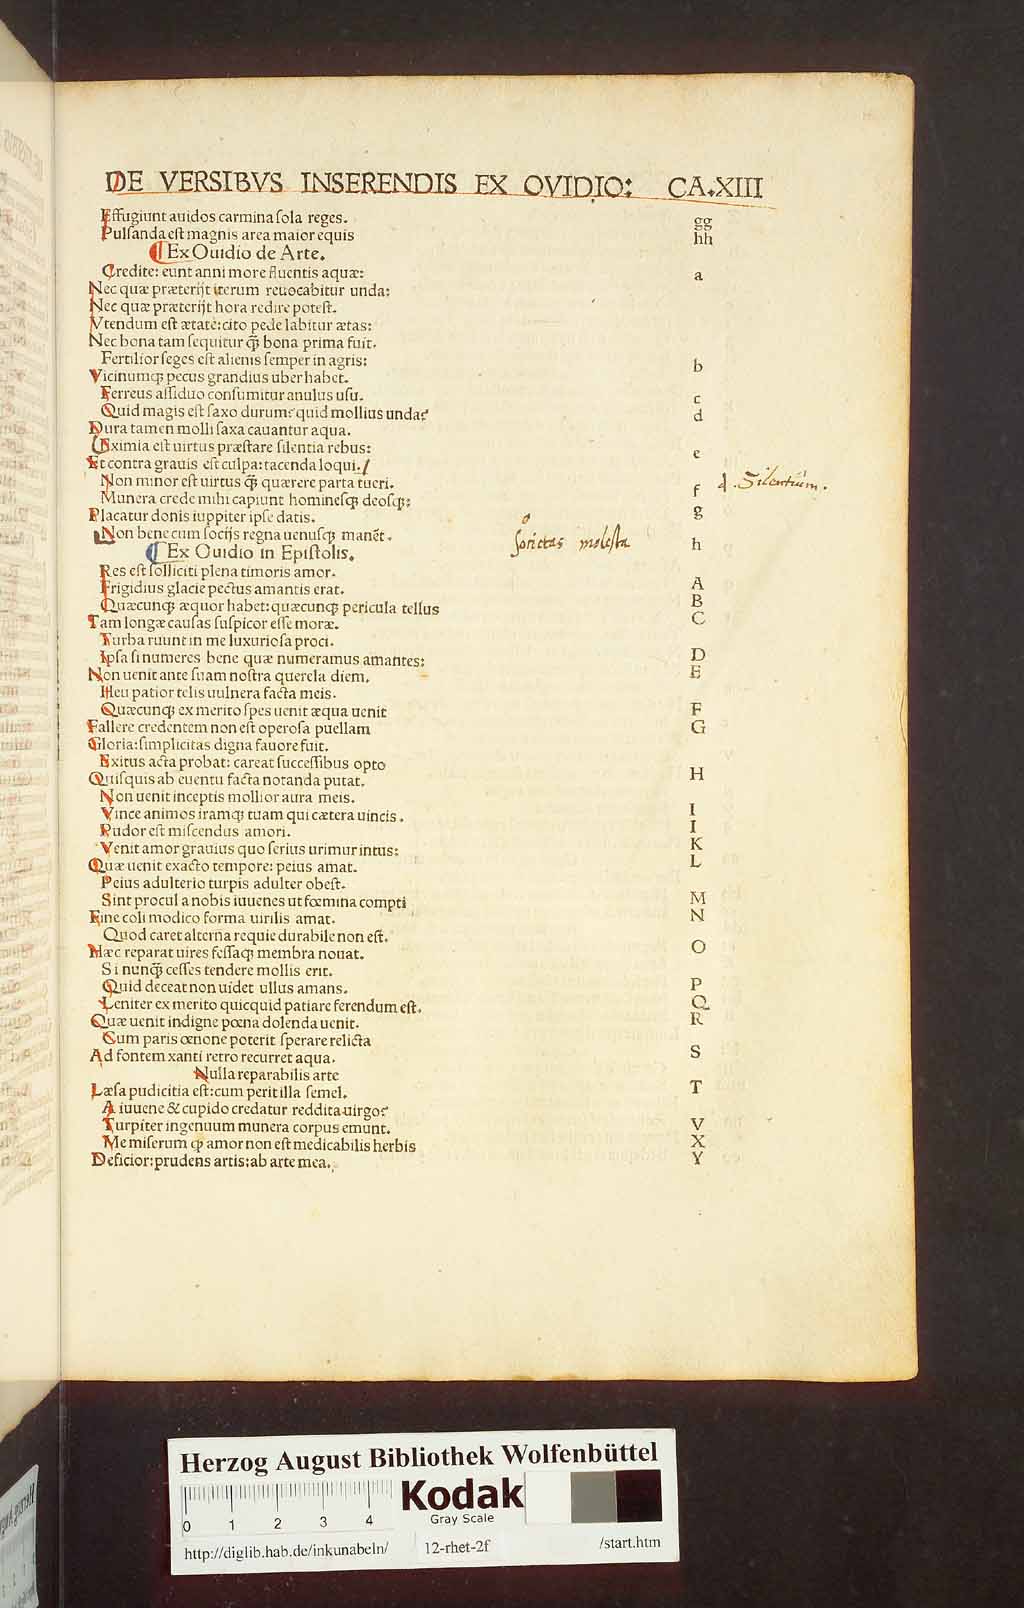 DE VERSIBVS INSERENDIS EX OVIDIO: CA.XIII
Effugiunt auidos carmina sola reges. gg
Pulsanda est magnis area maior equis hh
¶ Ex Ouidio de Arte.
Credite: eunt anni more fluentis aquæ: a
Nec quæ præterijt iterum reuocabitur unda:
Nec quæ præterijt hora redire potest.
Vtendum est ætate: cito pede labitur ætas:
Nec bona tam sequitur q̃ bona prima fuit.
Fertilior seges est alienis semper in agris: b
Vicinumqꝫ pecus grandius uber habet.
Ferreus assiduo consumitur anulus usu. c
Quid magis est saxo durum? quid mollius unda? d
Dura tamen molli saxa cauantur aqua.
Eximia est uirtus præstare silentia rebus: e
Et contra grauis est culpa: tacenda loqui.
Non minor est uirtus q̃ quærere parta tueri. f
d. Silentium.
Munera crede mihi capiunt hominesqꝫ deosqꝫ: g
Placatur donis iuppiter ipse datis.
Non bene cum socijs regna uenusqꝫ manẽt. h
Societas molesta
¶ Ex Ouidio in Epistolis.
Res est solliciti plena timoris amor. A
Frigidius glacie pectus amantis erat. B
Quæcunqꝫ æquor habet: quæcunqꝫ pericula tellus C
Tam longæ causas suspicor esse moræ.
Turba ruunt in me luxuriosa proci. D
Ipsa si numeres bene quæ numeramus amantes: E
Non uenit ante suam nostra querela diem.
Heu patior telis uulnera facta meis. F
Quæcunqꝫ ex merito spes uenit æqua uenit G
Fallere credentem non est operosa puellam
Gloria: simplicitas digna fauore fuit.
Exitus acta probat: careat successibus opto H
Quisquis ab euentu facta notanda putat.
Non uenit inceptis mollior aura meis. I
Vince animos iramqꝫ tuam qui cætera uincis. I
Pudor est miscendus amori. K
Venit amor grauius quo serius urimur intus: L
Quæ uenit exacto tempore: peius amat.
Peius adulterio turpis adulter obest. M
Sint procul a nobis iuuenes ut fœmina compti N
Fine coli modico forma uirilis amat.
Quod caret alterna requie durabile non est. O
Hæc reparat uires fessaqꝫ membra nouat.
Si nunq̃ cesses tendere mollis erit. P
Quid deceat non uidet ullus amans. Q
Leniter ex merito quicquid patiare ferendum est. R
Quæ uenit indigne pœna dolenda uenit.
Cum paris œnone poterit sperare relicta S
Ad fontem xanti retro recurret aqua.
Nulla reparabilis arte T
Læsa pudicitia est: cum perit illa semel.
A iuuene & cupido credatur reddita uirgo? V
Turpiter ingenuum munera corpus emunt. X
Me miserum ꝙ amor non est medicabilis herbis Y
Deficior: prudens artis: ab arte mea.
Herzog August Bibliothek Wolfenbüttel
0 1 2 3 4
Kodak
Gray Scale
http://diglib.hab.de/inkunabeln/ 12-rhet-2f /start.htm